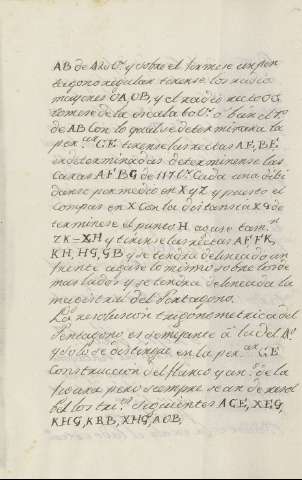 AB de 180 t.s y sobre el formese un pen
tagono regular tirense los radios
mayores OA, OB, y el radio recto OG
tomese de la escala
de AB con lo qual se determinara la
per.ar CE tirense las rectas AE, BE
indeterminadas determinense las
caras AF BG de Cada una dibi
danse por medio en X y Z y puesto el
compas en X con la distansia XG de
terminese el punto H agase tam.n
ZK=XH y tirense las rectas AF, FK,
KH, HG, GB y se tendra delineado un
frente agase lo mismo sobre los de
mas lados y se tendra delineada la
magistral del Pentagono.
La resolusion trigonometrica del
Pentagono es semejante á la del
y solo se distingue en la per.ar CE
Construccion del flanco y an.s de la
figura pero siempre se an de resol
ber los tri.s siguientes ACE, XEG,
KHG, KBB, XHG, AOB,